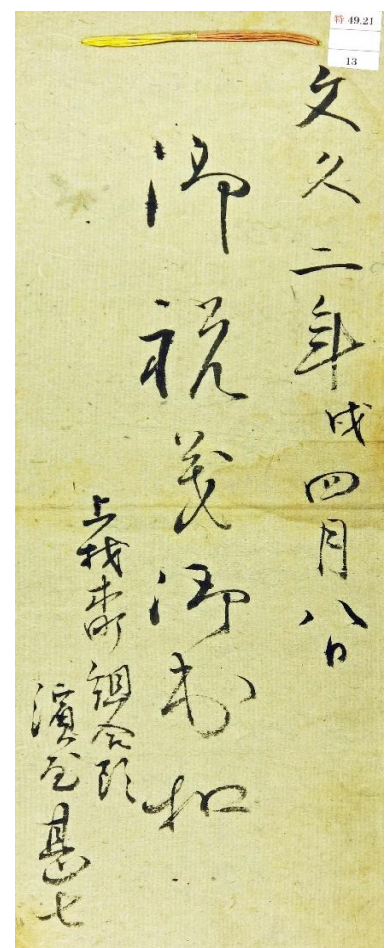 特 49.21
13
文久二年戌四月八日
御祝義御書扣
上材木町 組合頭
濱屋 甚七